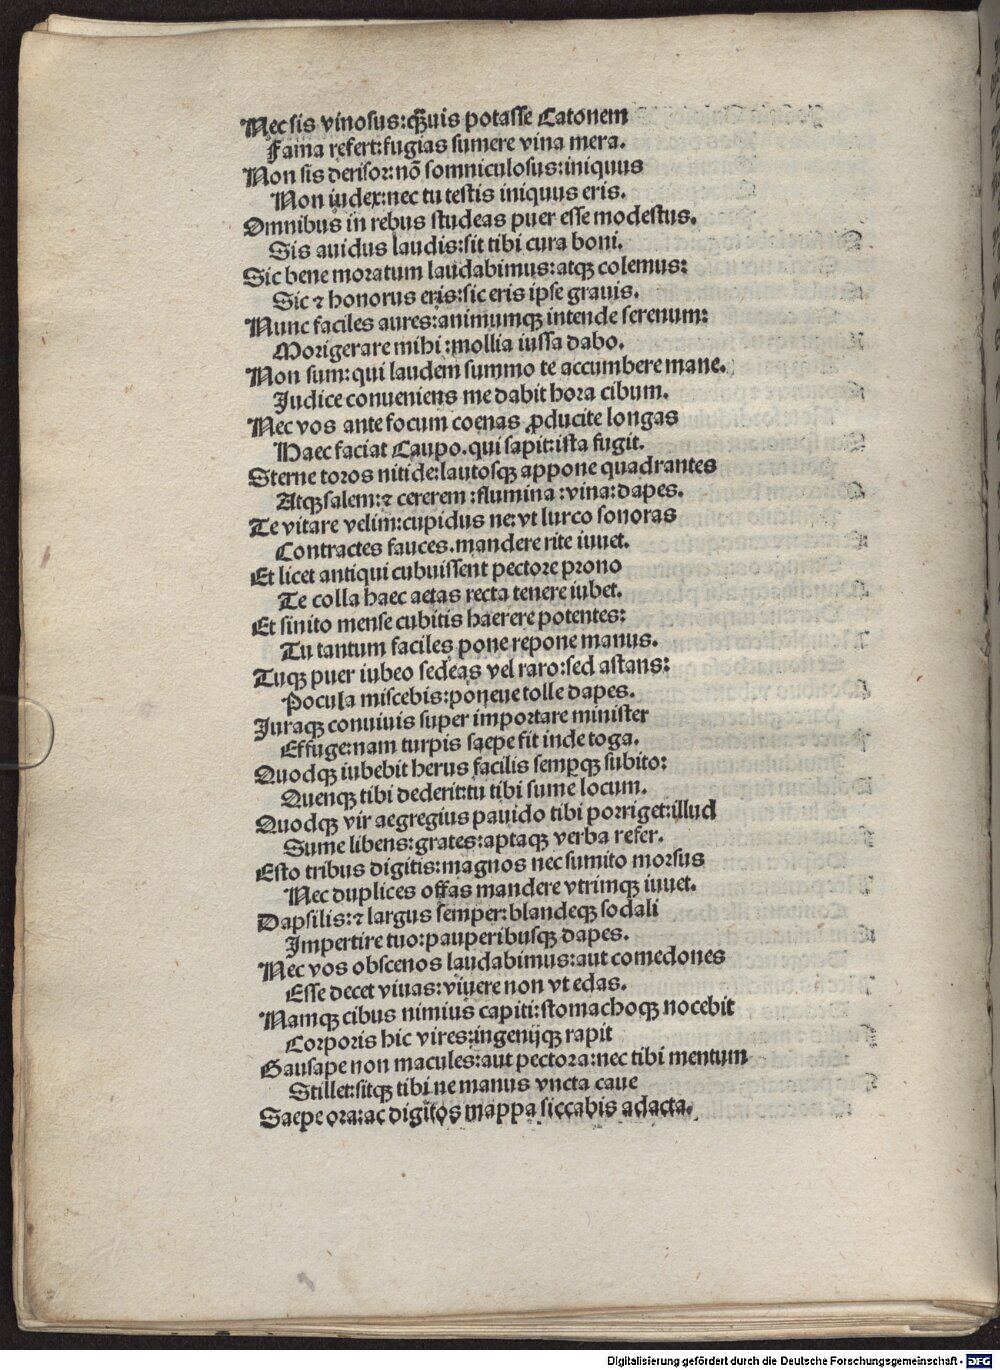 Nec sis vinosus:q̃uis potasse Catonem
Fama refert:fugias sumere vina mera.
Non sis derisor:nõ somniculosus:iniquus
Non iudex:nec tu testis iniquus eris.
Omnibus in rebus studeas puer esse modestus.
Sis auidus laudis:sit tibi cura boni.
Sic bene moratum laudabimus:atqꝫ colemus:
Sic ⁊ honorus eris:sic eris ipse grauis.
Nunc faciles aures:animumqꝫ intende serenum:
Morigerare mihi:mollia iussa dabo.
Non sum:qui laudem summo te accumbere mane.
Judice conueniens me dabit hora cibum.
Nec vos ante focum coenas ꝓducite longas
Haec faciat Caupo.qui sapit:ista fugit.
Sterne toros nitide:lautosqꝫ appone quadrantes
Atqꝫ salem:⁊ cererem:flumina:vina:dapes.
Te vitare velim:cupidus ne:vt lurco sonoras
Contractes fauces.mandere rite iuuet.
Et licet antiqui cubuissent pectore prono
Te colla haec aetas recta tenere iubet.
Et sinito mense cubitis haerere potentes:
Tu tantum faciles pone repone manus.
Tuqꝫ puer iubeo sedeas vel raro:sed astans:
Pocula miscebis:poneue tolle dapes.
Juraqꝫ conuiuis super importare minister
Effuge:nam turpis saepe fit inde toga.
Quodqꝫ iubebit herus facilis semꝑqꝫ subito:
Quenqꝫ tibi dederit:tu tibi sume locum.
Quodqꝫ vir aegregius pauido tibi porriget:illud
Sume libens:grates:aptaqꝫ verba refer.
Esto tribus digitis:magnos nec sumito morsus
Nec duplices offas mandere vtrimqꝫ iuuet.
Dapsilis:⁊ largus semper:blandeqꝫ sodali
Impertire tuo:pauperibusqꝫ dapes.
Nec vos obscenos laudabimus:aut comedones
Esse decet viuas:viuere non vt edas.
Namqꝫ cibus nimius capiti:stomachoqꝫ nocebit
Corporis hic vires:ingenijqꝫ rapit
Gausape non macules:aut pectora:nec tibi mentum
Stillet:sitqꝫ tibi ne manus vncta caue
Saepe ora:ac digitos mappa siccabis adacta.
Digitalisierung gefördert durch die Deutsche Forschungsgemeinschaft - DFG